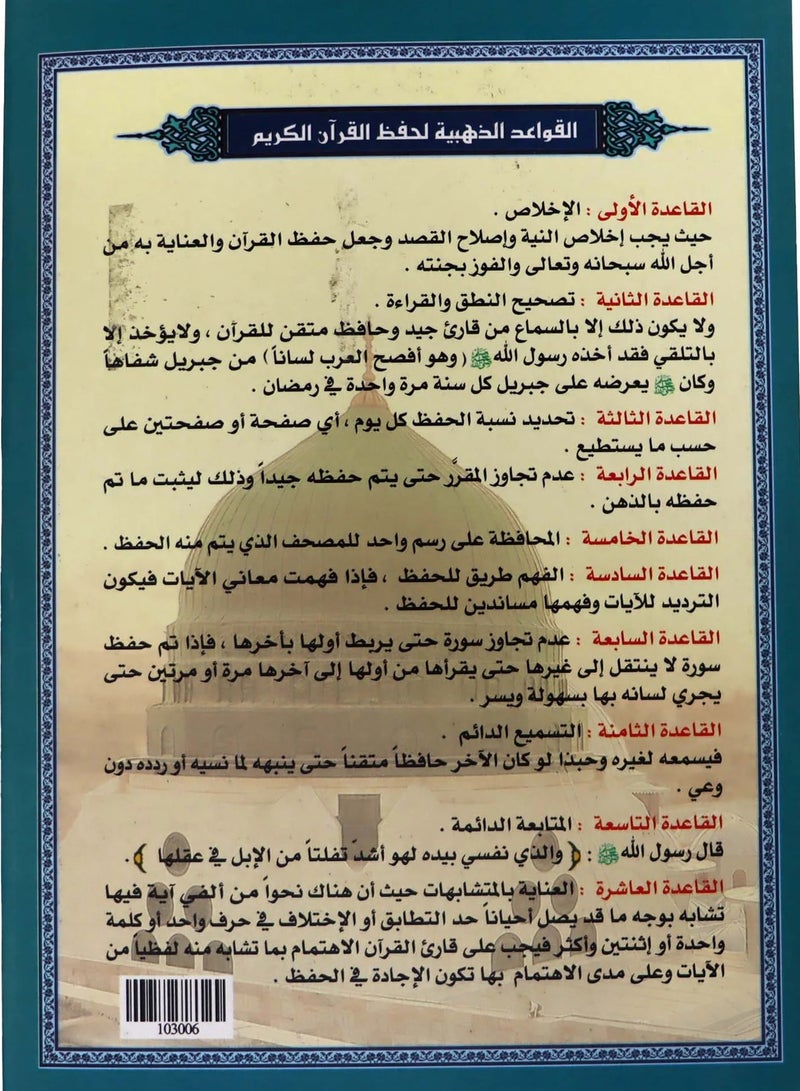 القواعد الذهبية لحفظ القرآن الكريم
القاعدة الأولى : الإخلاص .
حيث يجب إخلاص النية وإصلاح القصد وجعل حفظ القرآن والعناية به من
أجل الله سبحانه وتعالى والفوز بجنته .
القاعدة الثانية : تصحيح النطق والقراءة .
ولا يكون ذلك إلا بالسماع من قارئ جيد وحافظ متقن للقرآن ، ولايؤخذ إلا
بالتلقي فقد أخذه رسول الله ﷺ ( وهو أفصح العرب لساناً ) من جبريل شفاهاً
وكان ﷺ يعرضه على جبريل كل سنة مرة واحدة في رمضان .
القاعدة الثالثة : تحديد نسبة الحفظ كل يوم ، أي صفحة أو صفحتين على
حسب ما يستطيع .
القاعدة الرابعة : عدم تجاوز المقرَّر حتى يتم حفظه جيداً وذلك ليثبت ما تم
حفظه بالذهن .
القاعدة الخامسة : المحافظة على رسم واحد للمصحف الذي يتم منه الحفظ .
القاعدة السادسة : الفهم طريق للحفظ ، فإذا فهمت معاني الآيات فيكون
الترديد للآيات وفهمها مساندين للحفظ .
القاعدة السابعة : عدم تجاوز سورة حتى يربط أولها بأخرها ، فإذا تم حفظ
سورة لا ينتقل إلى غيرها حتى يقرأها من أولها إلى آخرها مرة أو مرتين حتى
يجري لسانه بها بسهولة ويسر .
القاعدة الثامنة : التسميع الدائم .
فيسمعه لغيره وحبذا لو كان الآخر حافظاً متقناً حتى ينبهه لما نسيه أو ردده دون
وعي .
القاعدة التاسعة : المتابعة الدائمة .
قال رسول الله ﷺ : ﴿ والذي نفسي بيده لهو أشدّ تفلتاً من الإبل في عقلها ﴾ .
القاعدة العاشرة : العناية بالمتشابهات حيث أن هناك نحواً من ألفي آية فيها
تشابه بوجه ما قد يصل أحياناً حد التطابق أو الإختلاف في حرف واحد أو كلمة
واحدة أو إثنتين وأكثر فيجب على قارئ القرآن الاهتمام بما تشابه منه لفظياً من
الآيات وعلى مدى الاهتمام بها تكون الإجادة في الحفظ .
103006